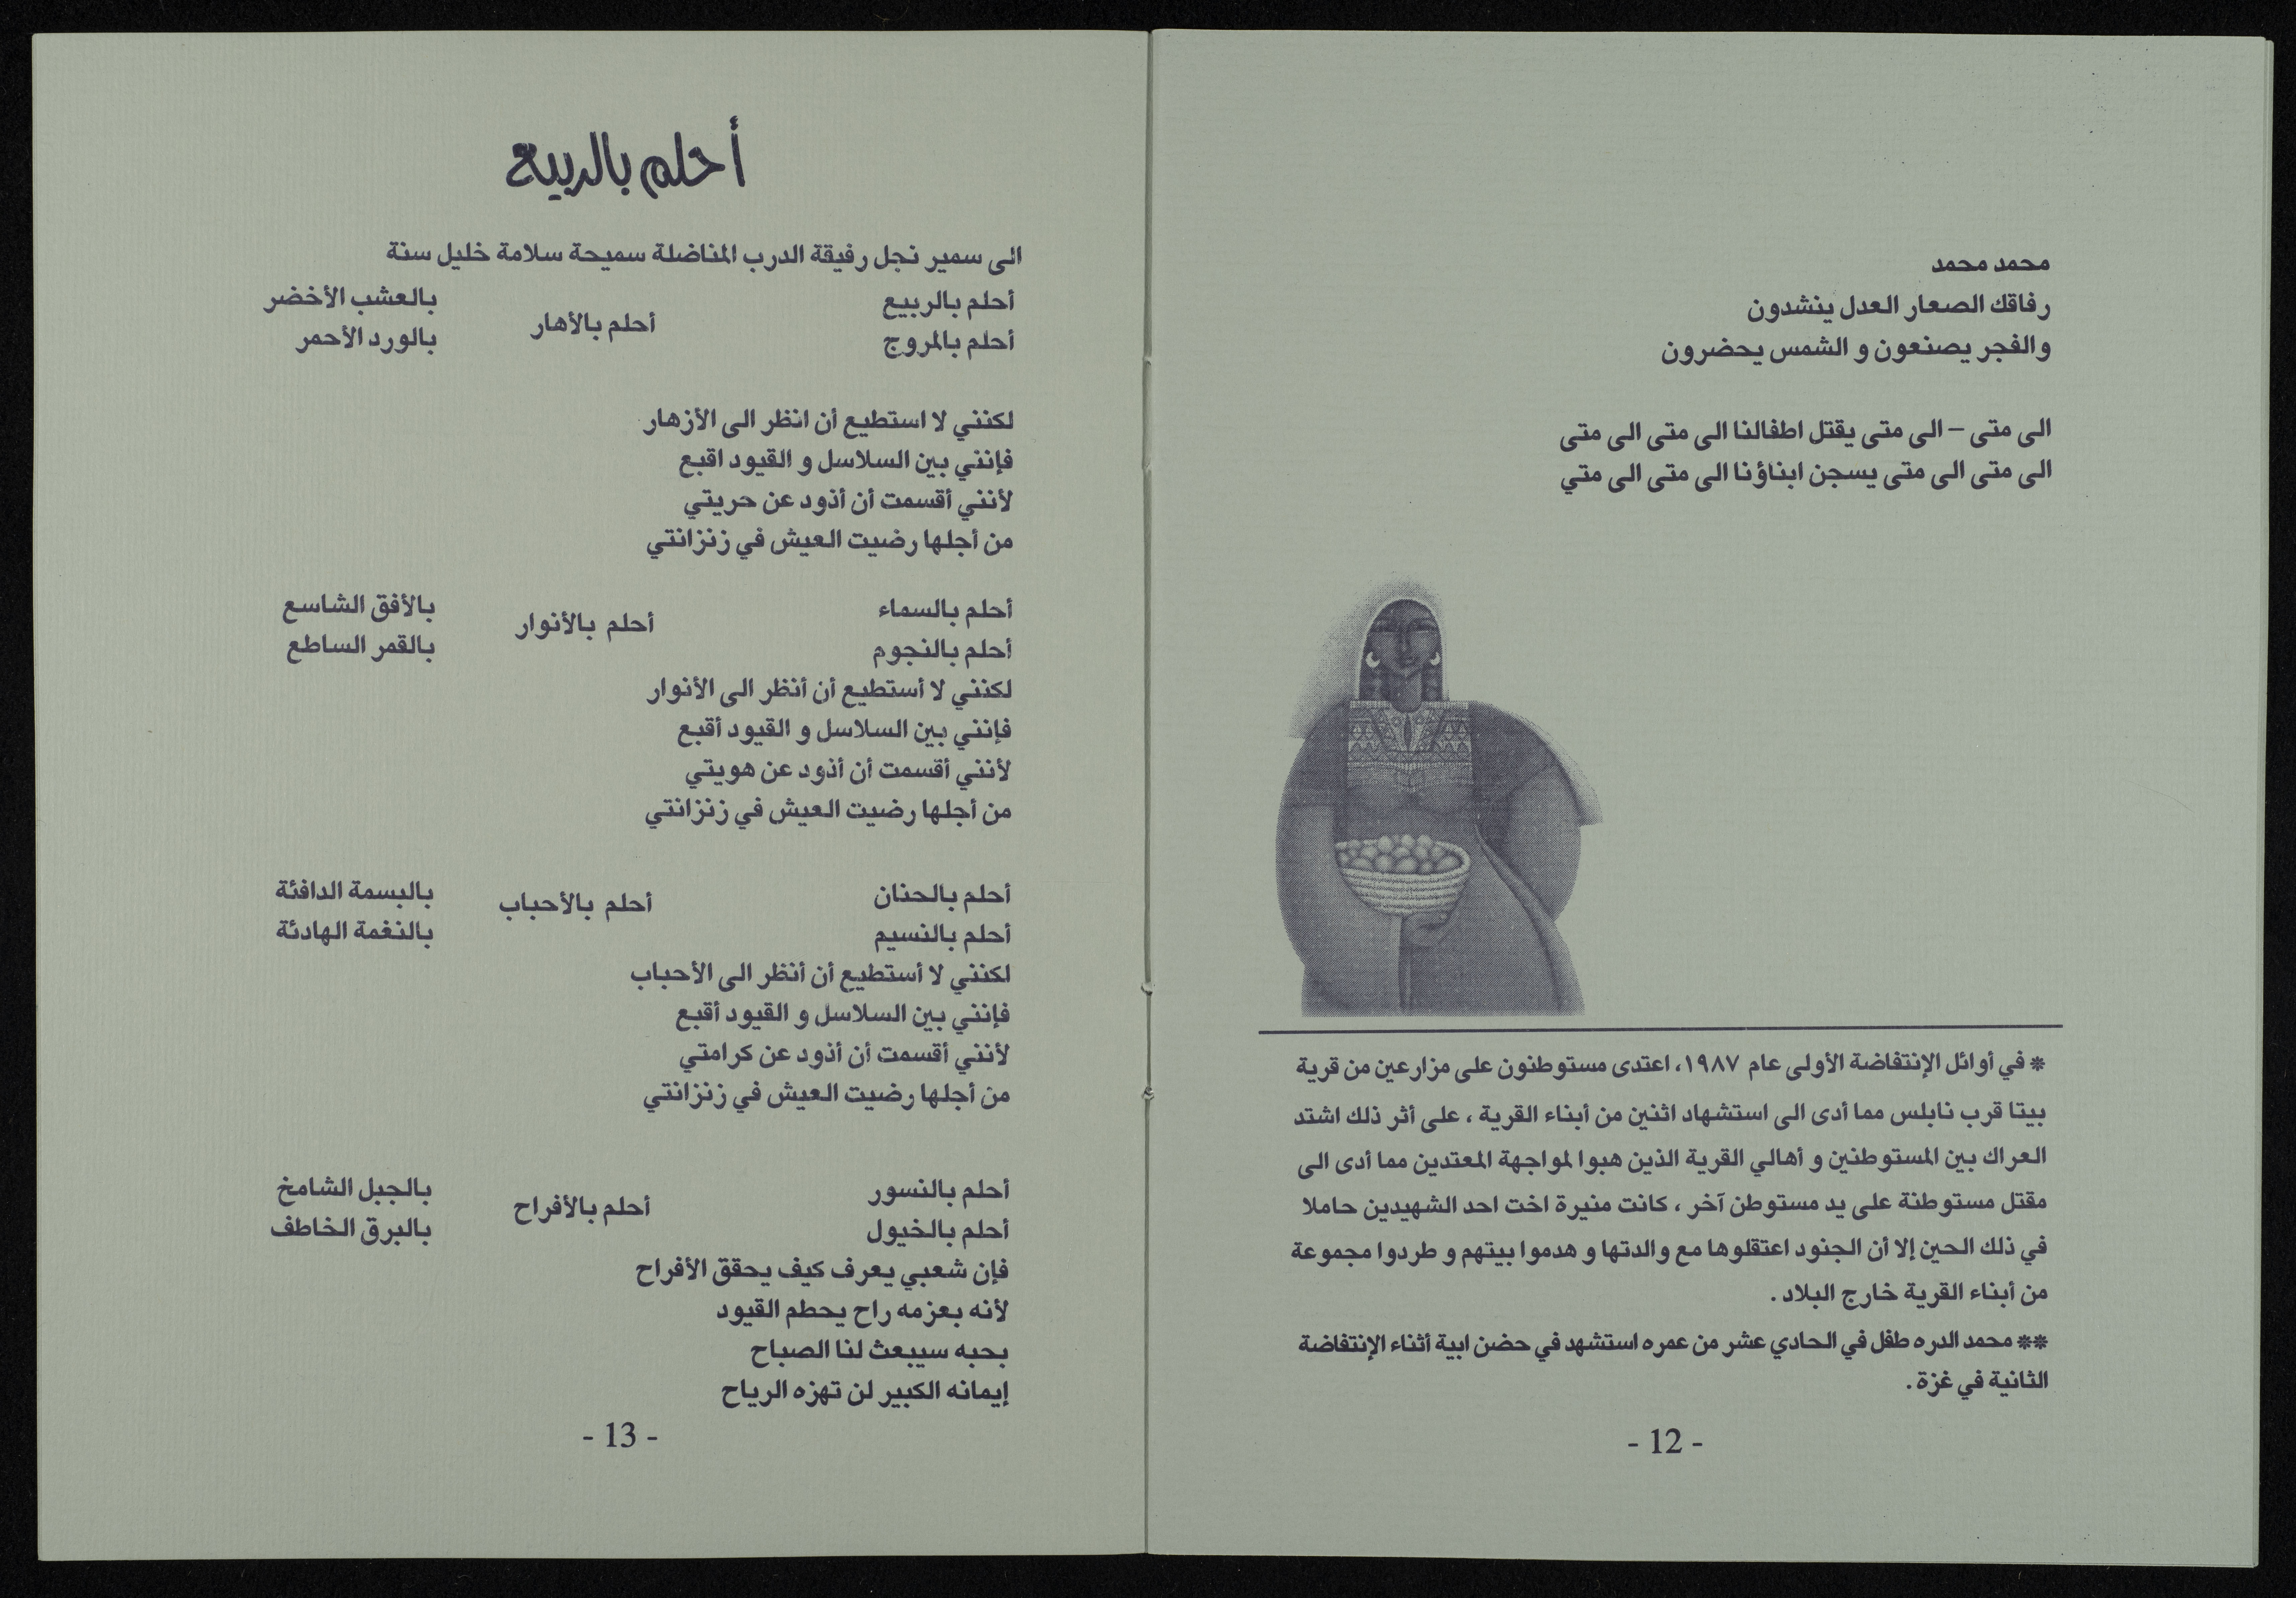 محمد محمد
رفاقك الصعار العدل ينشدون
والفجر يصنعون و الشمس يحضرون
الى متى – الى متى يقتل اطفالنا الى متى الى متى
الى متى الى متى يسجن ابناؤنا الى متى الى متي
* في أوائل الإنتفاضة الأولى عام ١٩٨٧، اعتدى مستوطنون على مزارعين من قرية
بيتا قرب نابلس مما أدى الى استشهاد اثنين من أبناء القرية ، على أثر ذلك اشتد
العراك بين المستوطنين و أهالي القرية الذين هبوا لمواجهة المعتدين مما أدى الى
مقتل مستوطنة على يد مستوطن آخر ، كانت منيرة اخت احد الشهيدين حاملا
في ذلك الحين إلا أن الجنود اعتقلوها مع والدتها و هدموا بيتهم و طردوا مجموعة
من أبناء القرية خارج البلاد .
** محمد الدره طفل في الحادي عشر من عمره استشهد في حضن ابية أثناء الإنتفاضة
الثانية في غزة .
- 12 -
أحلم بالربيع
الى سمير نجل رفيقة الدرب المناضلة سميحة سلامة خليل سنة
أحلم بالربيع
أحلم بالمروج
أحلم بالأهار
بالعشب الأخضر
بالورد الأحمر
لكنني لا استطيع أن انظر الى الأزهار
فإنني بين السلاسل و القيود اقبع
لأنني أقسمت أن أذود عن حريتي
من أجلها رضيت العيش في زنزانتي
أحلم بالسماء
أحلم بالنجوم
أحلم بالأنوار
بالأفق الشاسع
بالقمر الساطع
لكنني لا أستطيع أن أنظر الى الأنوار
فإنني بين السلاسل و القيود أقبع
لأنني أقسمت أن أذود عن هويتي
من أجلها رضيت العيش في زنزانتي
أحلم بالحنان
أحلم بالنسيم
أحلم بالأحباب
بالبسمة الدافئة
بالنغمة الهادئة
لكنني لا أستطيع أن أنظر الى الأحباب
فإنني بين السلاسل و القيود أقبع
لأنني أقسمت أن أذود عن كرامتي
من أجلها رضيت العيش في زنزانتي
أحلم بالنسور
أحلم بالخيول
أحلم بالأفراح
بالجبل الشامخ
بالبرق الخاطف
فإن شعبي يعرف كيف يحقق الأفراح
لأنه بعزمه راح يحطم القيود
بحبه سيبعث لنا الصباح
إيمانه الكبير لن تهزه الرياح
- 13 -